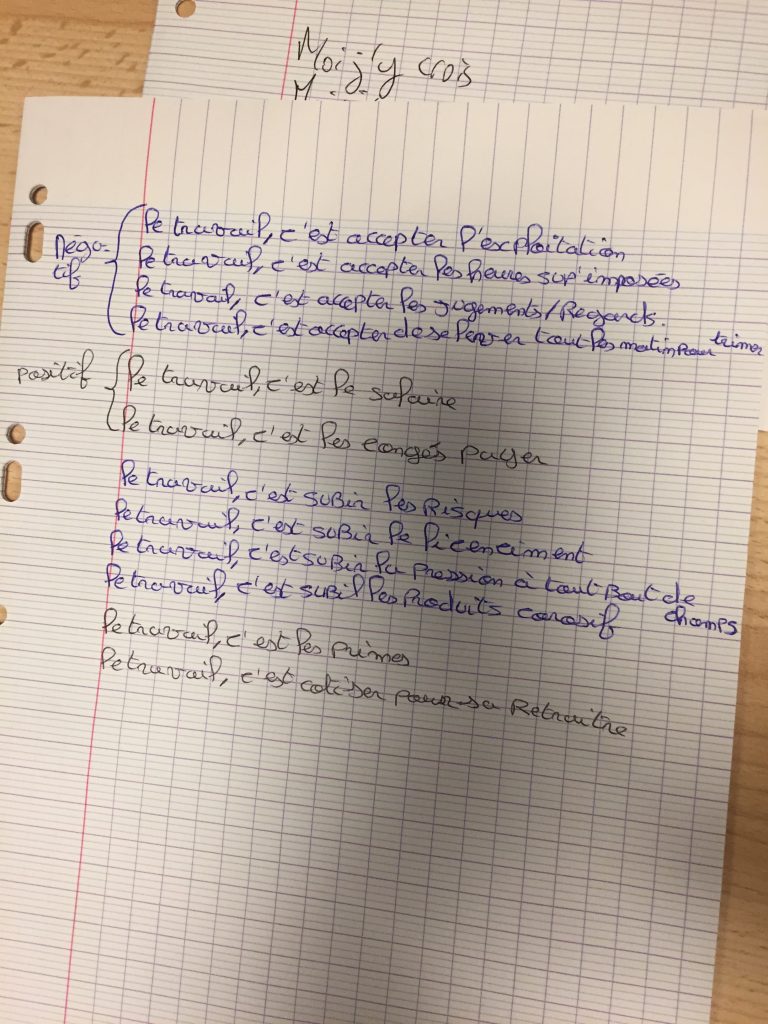 Moi j'y crois
Néga-
tif
Le travail, c'est accepter l'exploitation
Le travail, c'est accepter les heures sup' imposées
Le travail, c'est accepter les jugements/Regards.
Le travail, c'est accepter de se lever tout les matin pour trimer
positif
Le travail, c'est le salaire
Le travail, c'est les congés payer
Le travail, c'est subir les Risques
Le travail, c'est subir le licenciment
Le travail, c'est subir la pression à tout bout de champs
Le travail, c'est subil les produits corosif
Le travail, c'est les primes
Le travail, c'est cotiser pour sa Retraitre